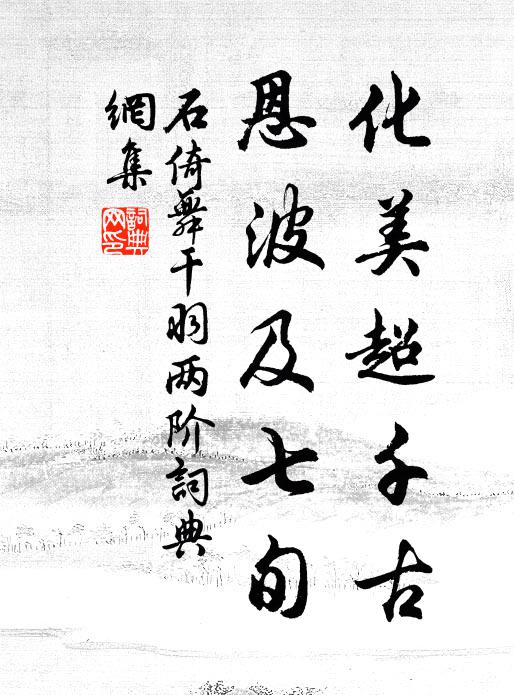 化美超千古
恩波及七旬
石倚舞干羽两阶詞典
網集
詞典網印